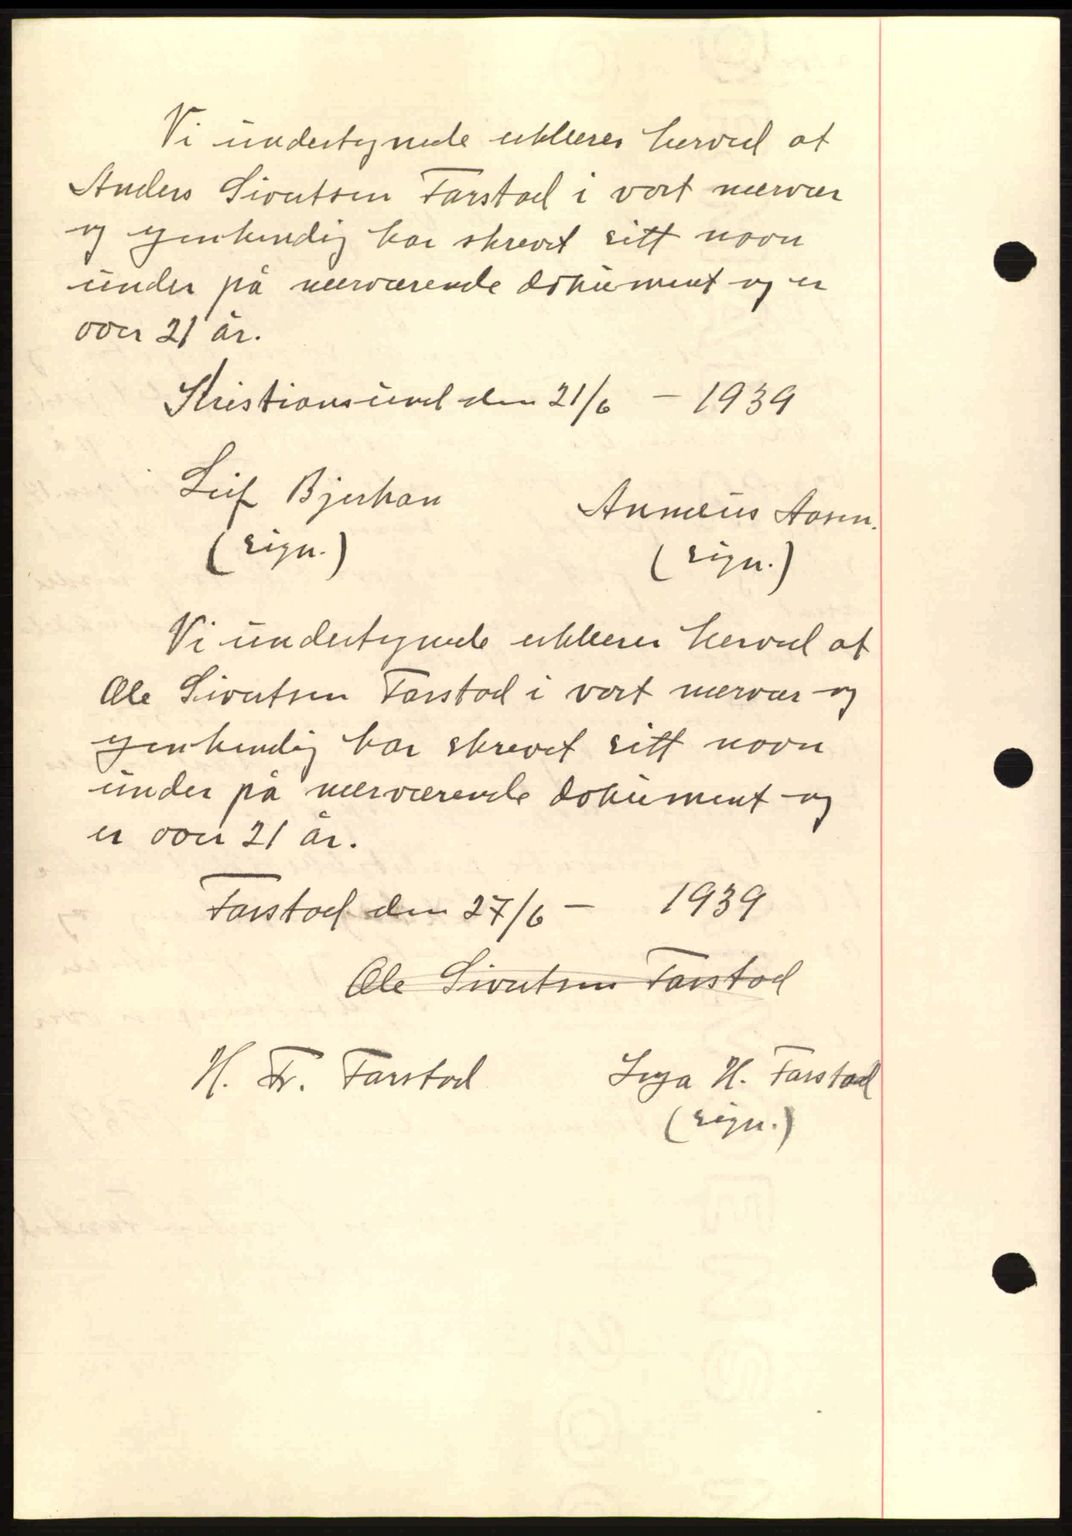 Vi undertegnede erklærer herved at
Anders Sivertsen Farstad i vort nærvær
og egenhendig har skrevet sitt navn
under på nærværende dokument og er
over 21 år.
Kristiansund den 21/6 - 1939
Leif Bjerkan
Aasen.
(sign.)
(sign.)
Vi undertegnede erklærer herved at
Ole Sivertsen Farstad i vort nærvær og
egenhendig har skrevet sitt navn
under på nærværende dokument og
er over 21 år.
Farstad den 27/6 - 1939
Ole Sivertsen Farstad
H. Fr. Farstad
Inga H. Farstad
(sign.)